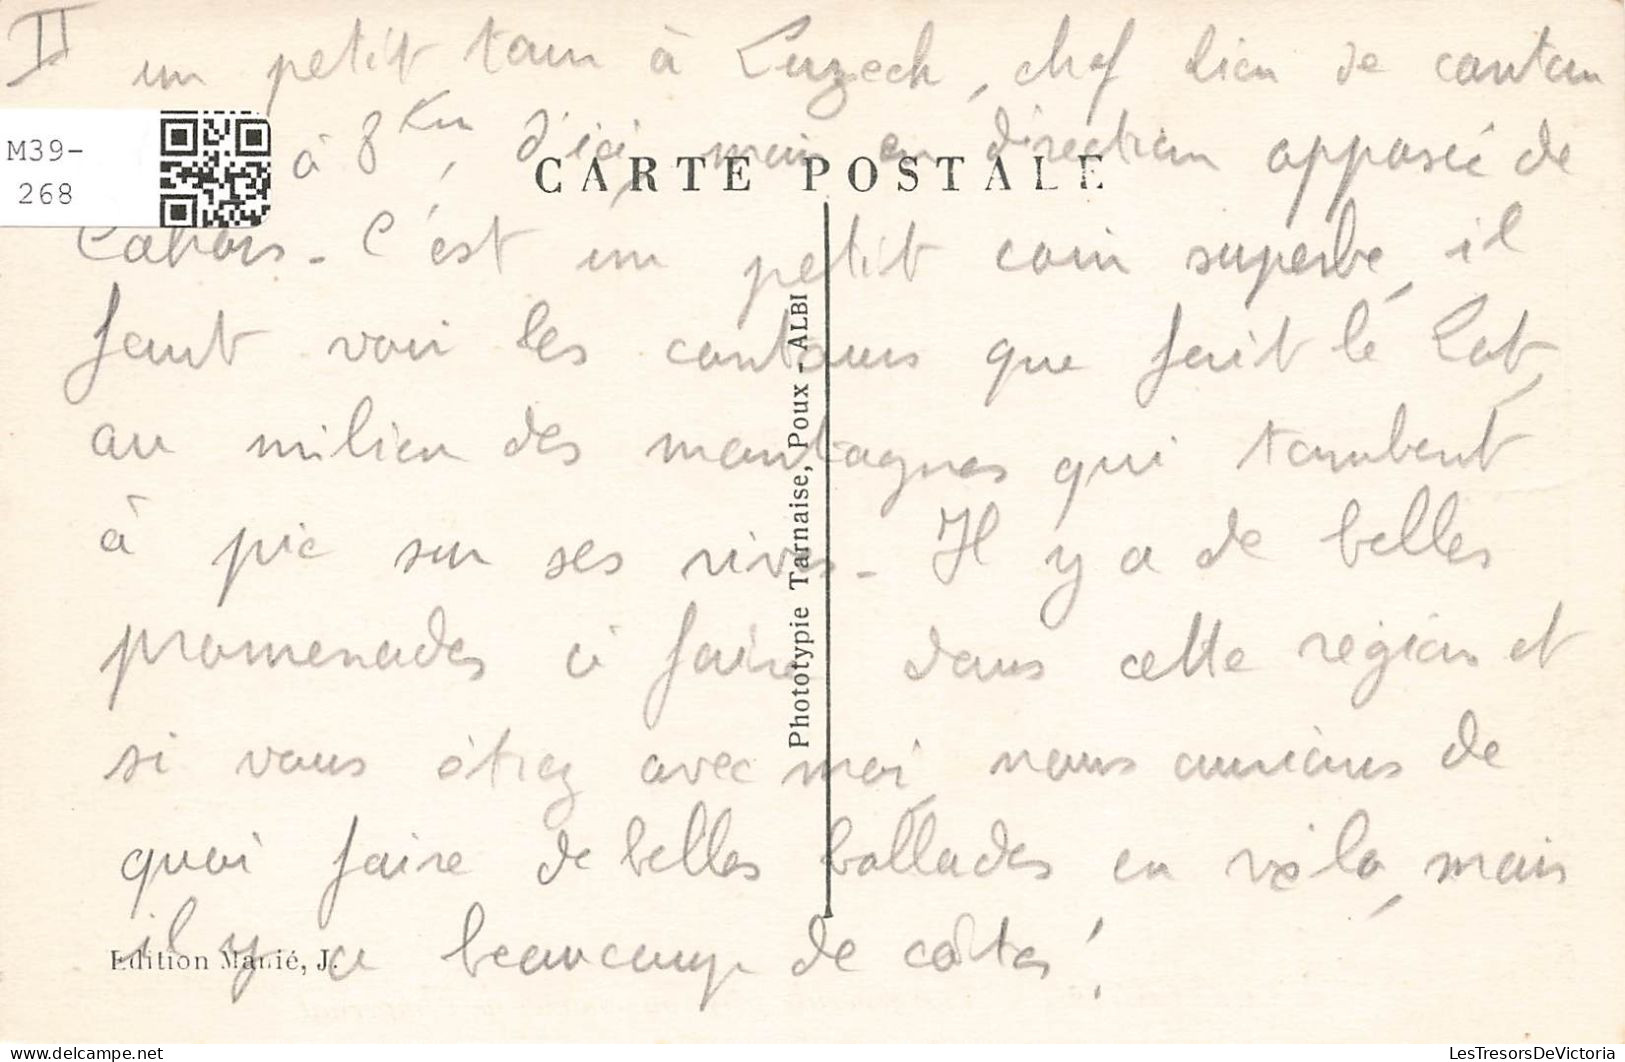 II
un petit tour à Luzech, chef lieu de canton
M39-
268
à 8 Km, d'ici, mais en direction opposée de
CARTE POSTALE
Cahors - C'est un petit coin superbe, il
faut voir les contours que fait le Lot,
au milieu des montagnes qui tombent
à pic sur ses rives - Il y a de belles
promenades à faire dans cette région et
si vous étiez avec moi, nous aurions de
quoi faire de belles ballades en vélo, mais
il y a beaucoup de côtes !
Phototypie Tarnaise, Poux - ALBI
Edition Manié, J.
delcampe.net
LesTresorsDeVictoria